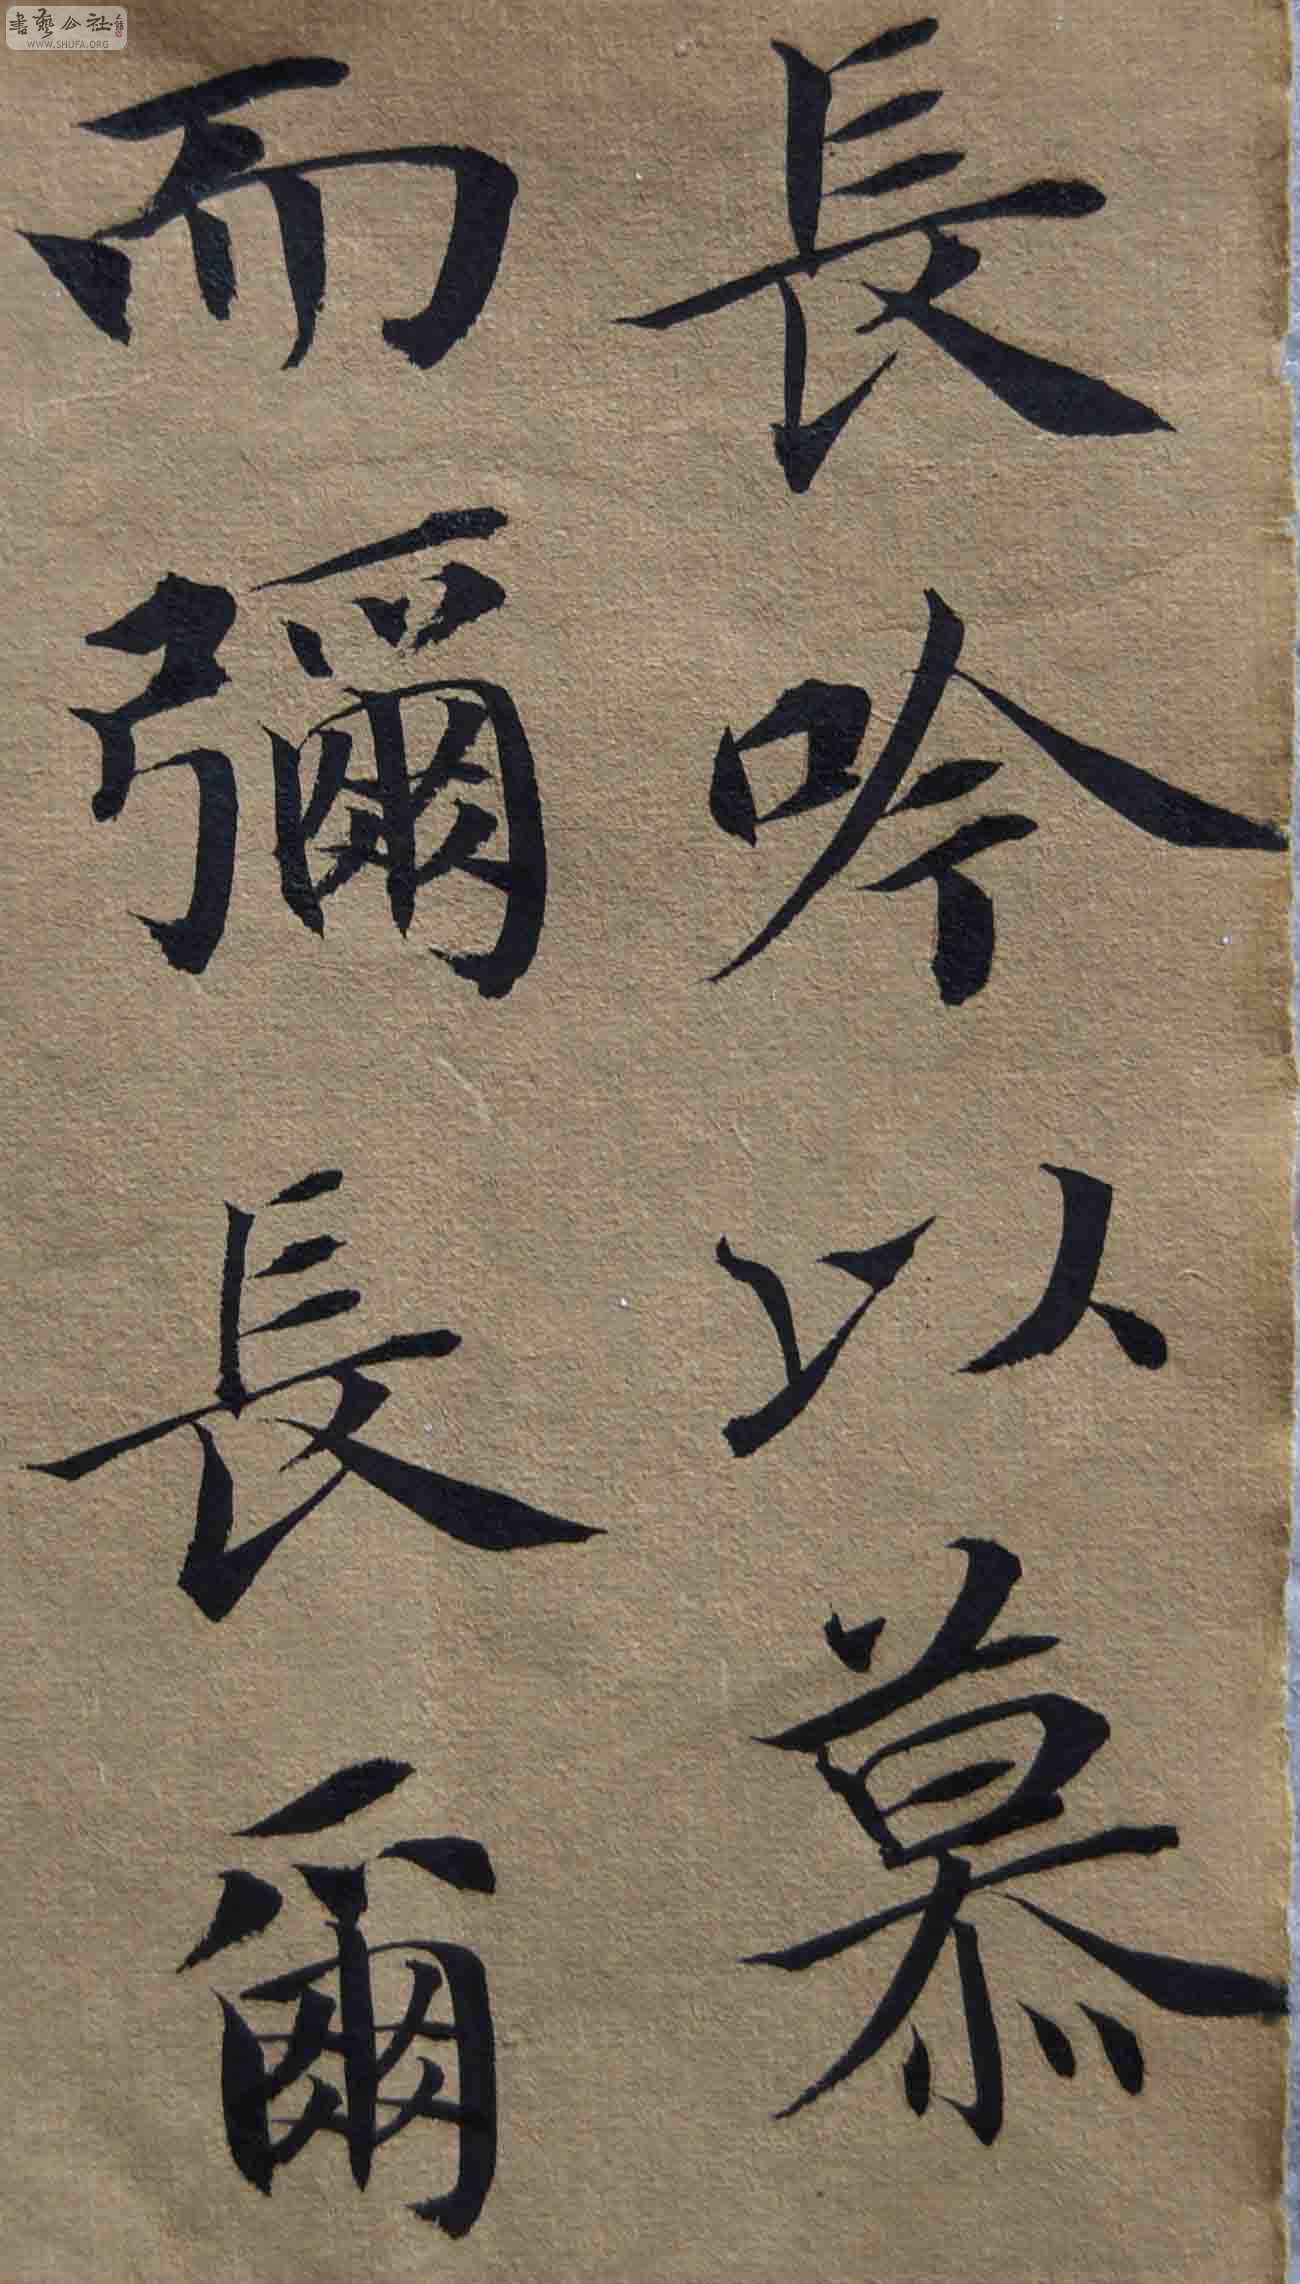 長吟以慕
而彌長爾
書藝公社
WWW.SHUFA.ORG